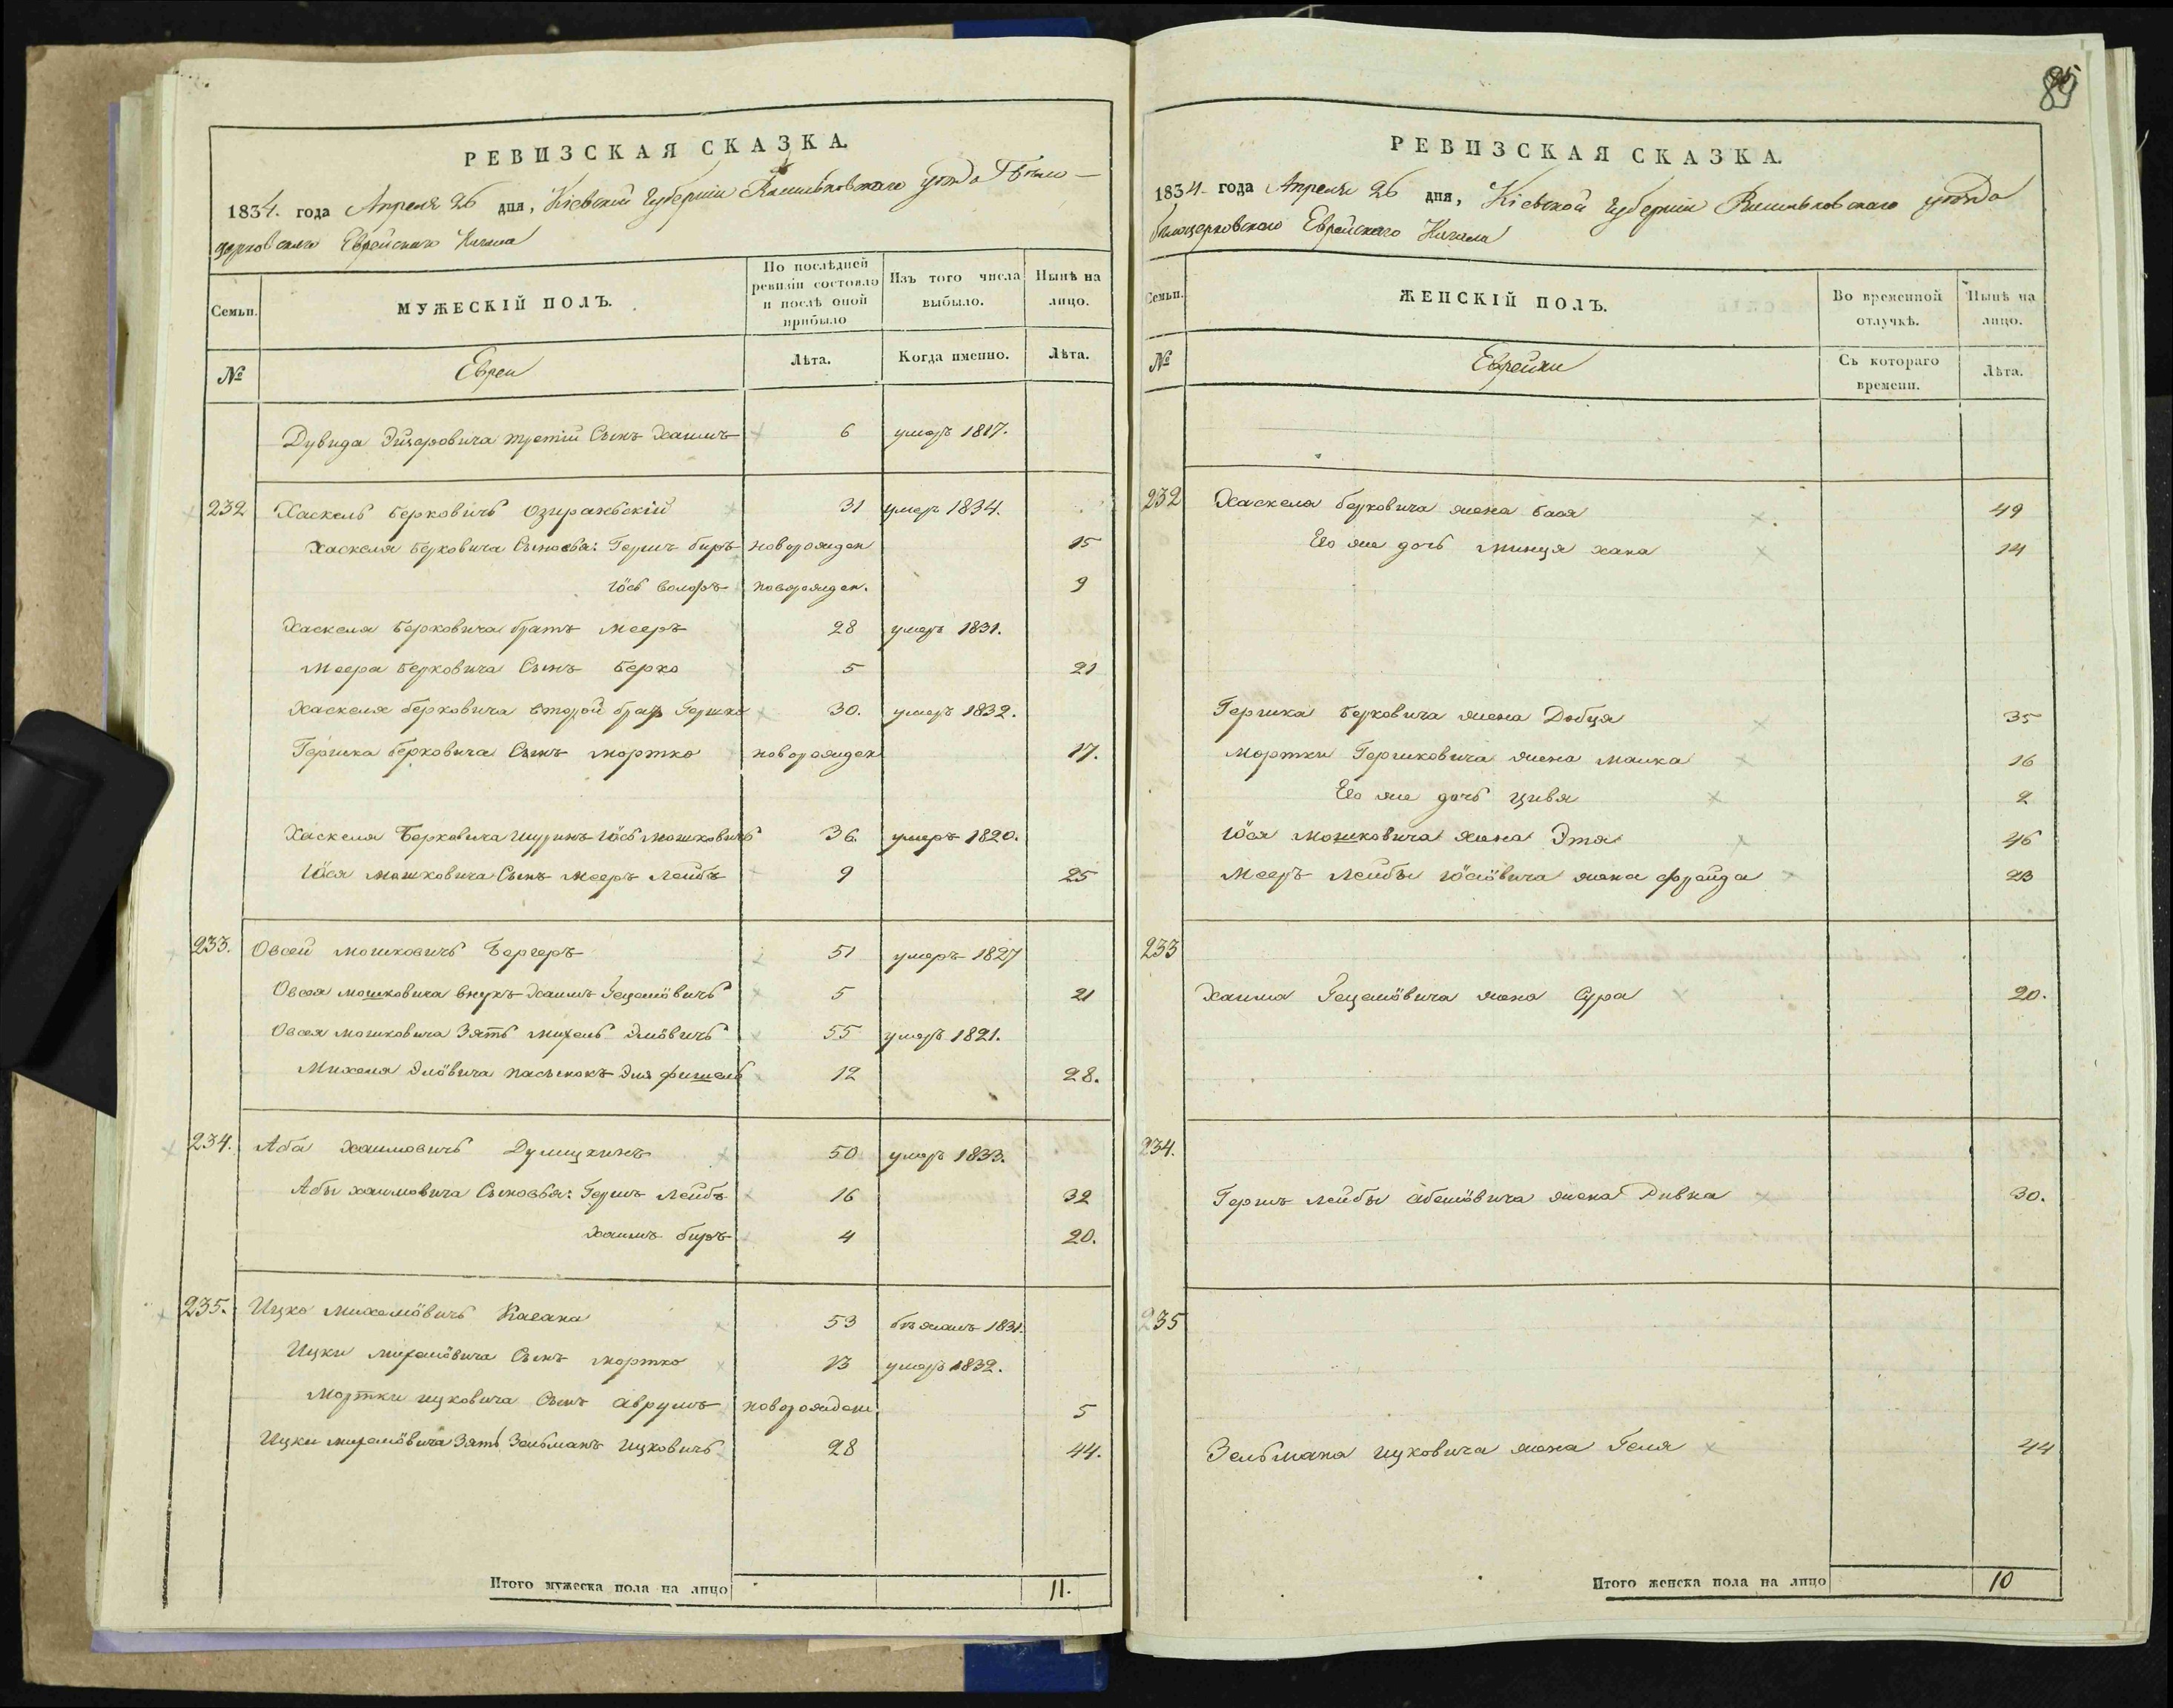 РЕВИЗСКАЯ СКАЗКА.
1834. года Апреля 26 дня, Кіевской Губерніи Васильковского уезда Бѣло-
церковского Еврейскаго Кагала
Семьи.
МУЖЕСКІЙ ПОЛЪ.
По послѣдней ревизіи состояло и послѣ оной прибыло
Изъ того числа выбыло.
Нынѣ на лицо.
№
Евреи
Лѣта.
Когда именно.
Лѣта.
Дувида Эйзеровича третій Сынъ Хаимъ 6 умеръ 1817.
232 Хаскель Берковичь Озиранскій 31 умеръ 1834.
Хаскеля Берковича Сыновья: Гершъ Беръ новорожден 15
Іось волфъ новорожден. 9
Хаскеля Берковича братъ Мееръ 28 умеръ 1831.
Меера Берковича Сынъ Берко 5 21
Хаскеля Берковича второй братъ Гершко 30. умеръ 1832.
Гершка Берковича Сынъ Мортко новорожден 17.
Хаскеля Берковича шуринъ Іось Мошковичь 36. умеръ 1820.
Іося Мошковича Сынъ Мееръ Лейбъ 9 25
233. Овсей Мошковичь Бергеръ 51 умеръ 1827
Овсея Мошковича внукъ Хаимъ Гецелёвичь 5 21
Овсея Мошковича Зять Михель Элёвичь 55 умеръ 1821.
Михеля Элёвича пасынокъ Эля фишель 12 28.
234. Аба Хаимовичь Дулицкинъ 50 умеръ 1833.
Абы Хаимовича Сыновья: Гершъ Лейбъ 16 32
Хаимъ беръ 4 20.
235. Ицко Михелёвичь Кагана 53 бѣжалъ 1831.
Ицки Михелёвича Сынъ Мортко 13 умеръ 1832.
Мортки Ицковича Сынъ Аврумъ новорожден. 5
Ицки Михелёвича Зять Зельманъ Ицковичь 28 44.
Итого мужеска пола на лицо 11.
89
РЕВИЗСКАЯ СКАЗКА.
1834 года Апреля 26 дня, Кіевской Губерніи Васильковскаго уезда
белоцерковского Еврейского Кагала
Семьи.
ЖЕНСКІЙ ПОЛЪ.
Во временной отлучкѣ.
Нынѣ на лицо.
№
Еврейки
Съ котораго времени.
Лѣта.
232 Хаскеля Берковича жена Бася 49
Его же дочь Минця Хана 14
Гершка Берковича жена Добця 35
Мортки Гершковича жена Малка 16
Его же дочь Цивя 2
Іося Мошковича жена Этя 46
Мееръ Лейбы Іосёвича жена фрайда 23
233
Хаима Гецелёвича жена Сура 20.
234.
Гершъ Лейбы Абелёвича жена Ривка 30.
235
Зельмана Ицковича жена Геля 44
Итого женска пола на лицо 10